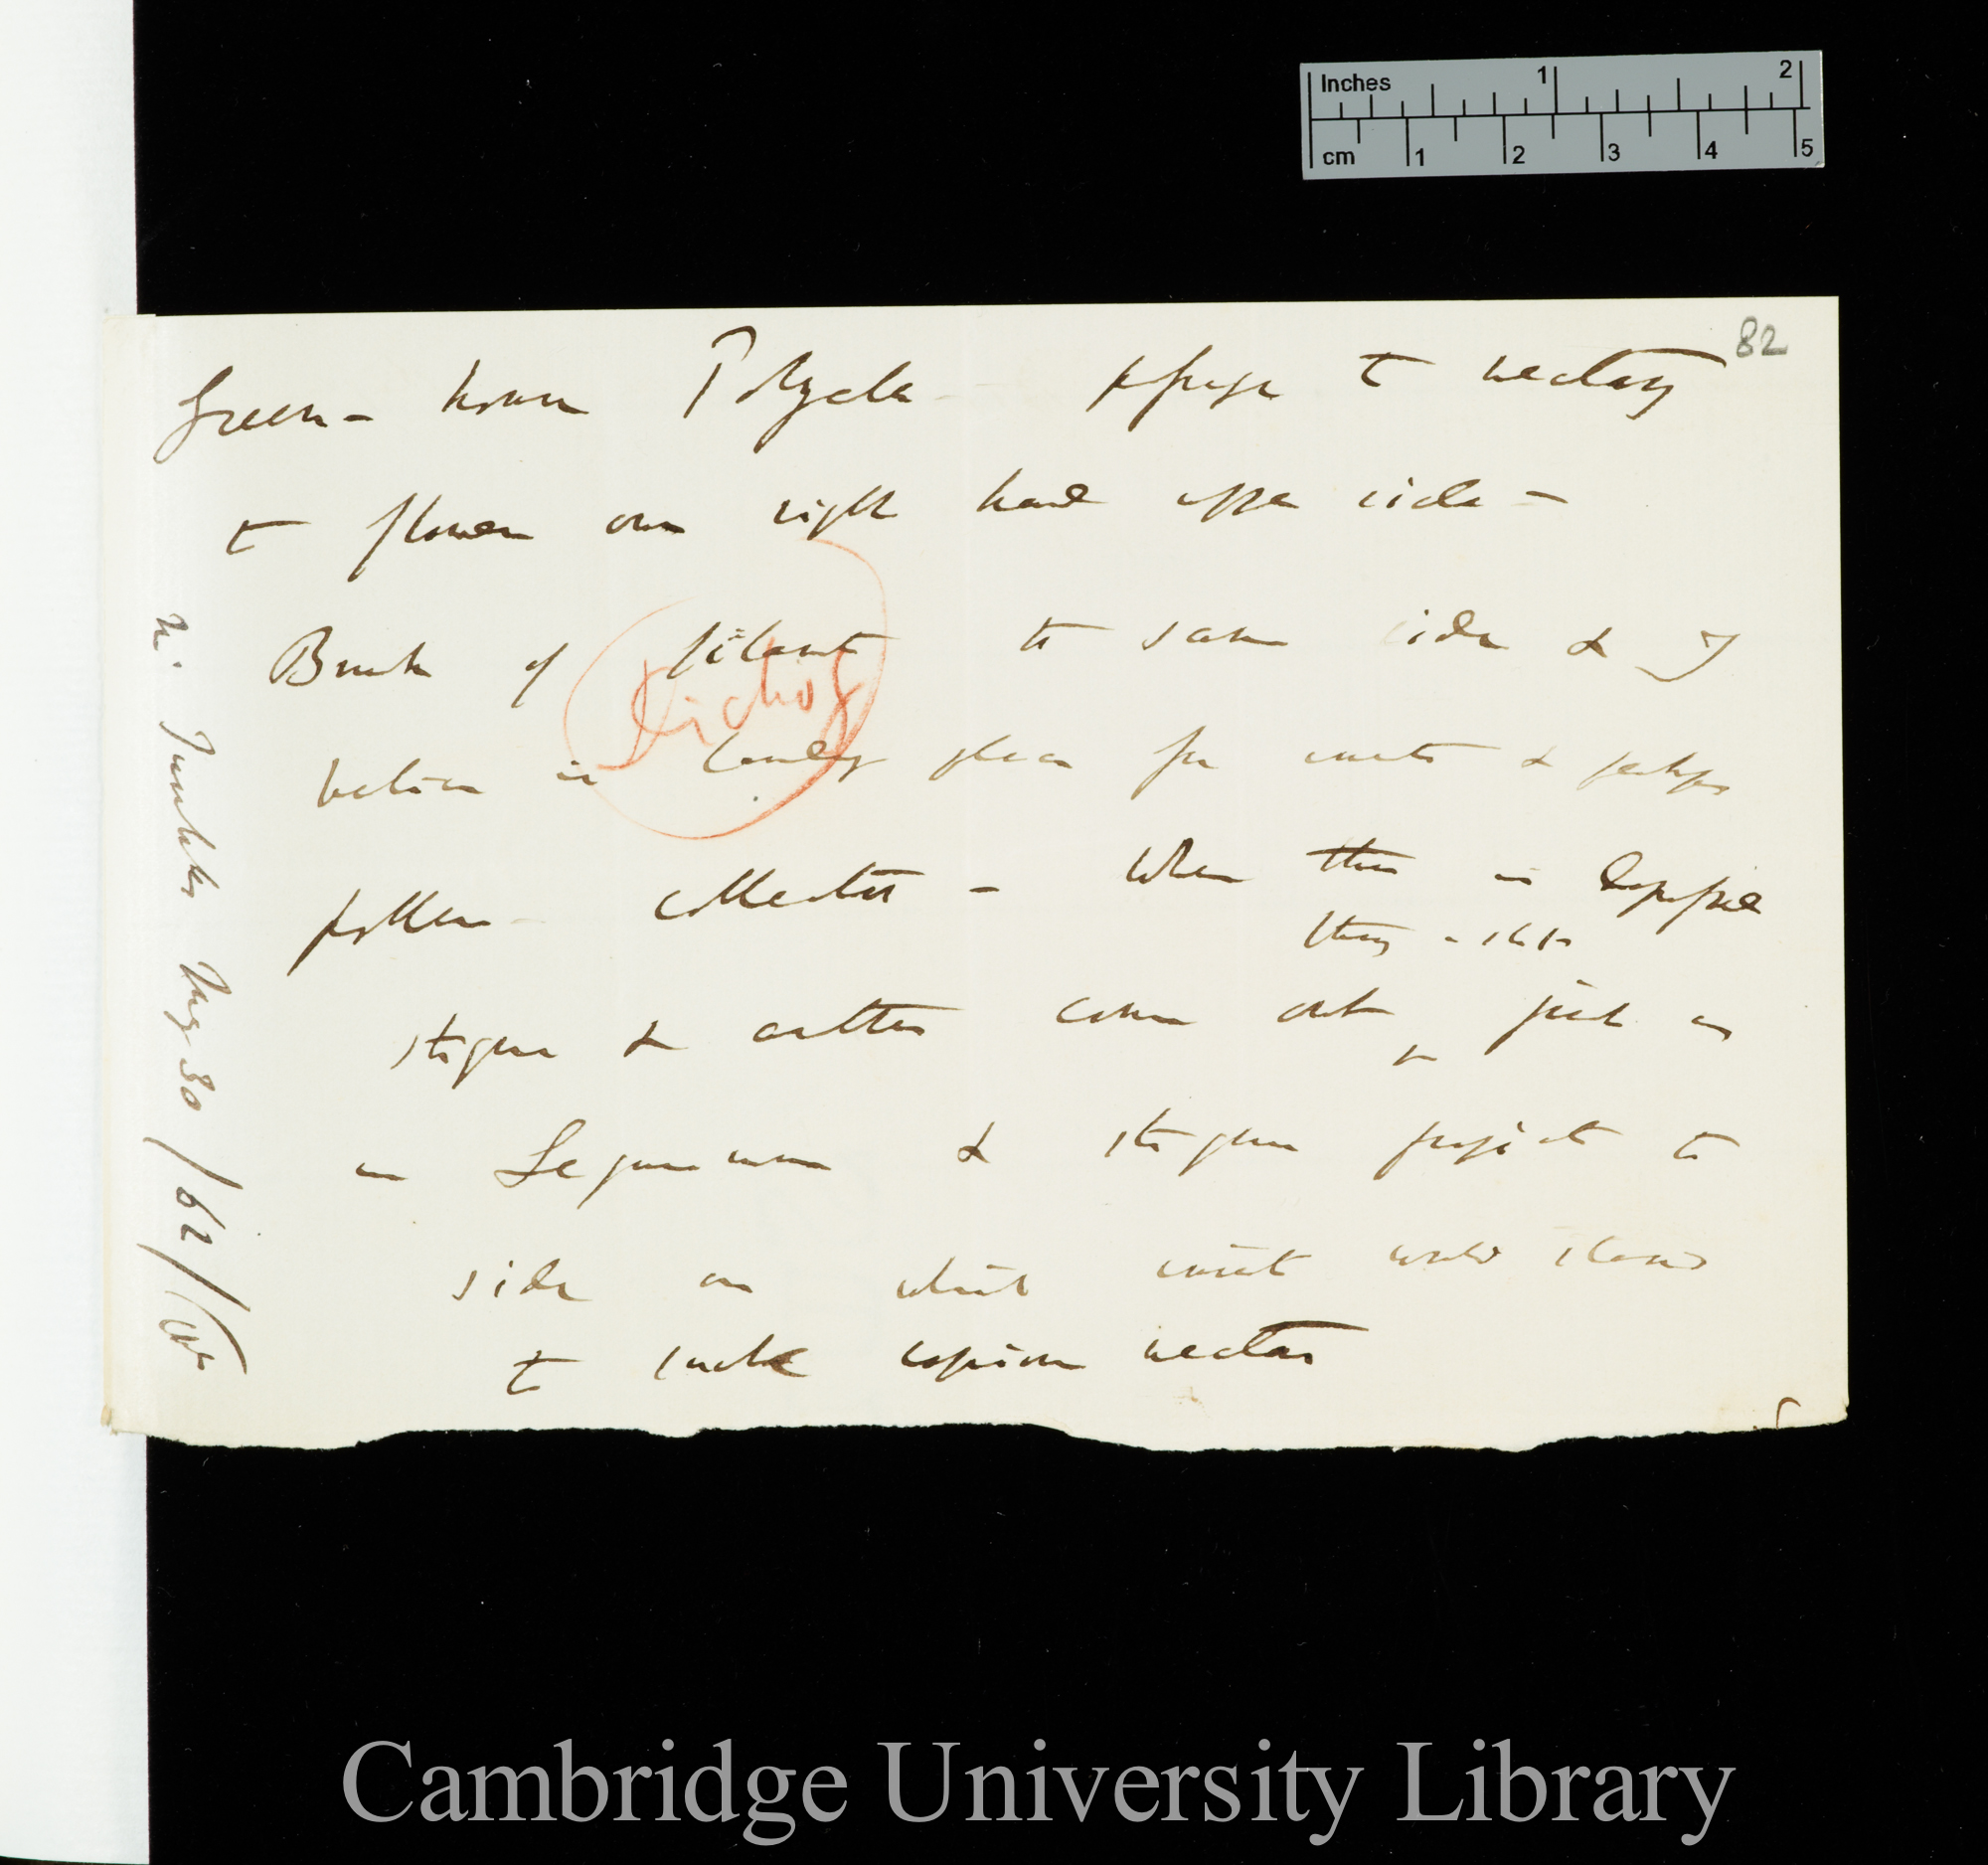 Inches 1 2
cm 1 2 3 4 5
82
Green-house Polygala — passage to nectary
to flower on right hand upper side —
Brush of filament to same side &
between is landing place for insects & perhaps
pollen-collectors — When this is depressed
they
stigma & anthers come out just as
in Leguminosae & stigma project to
side on which insect would stand
to suck copious nectar
Dichog
Aug 30/62/
Cambridge University Library